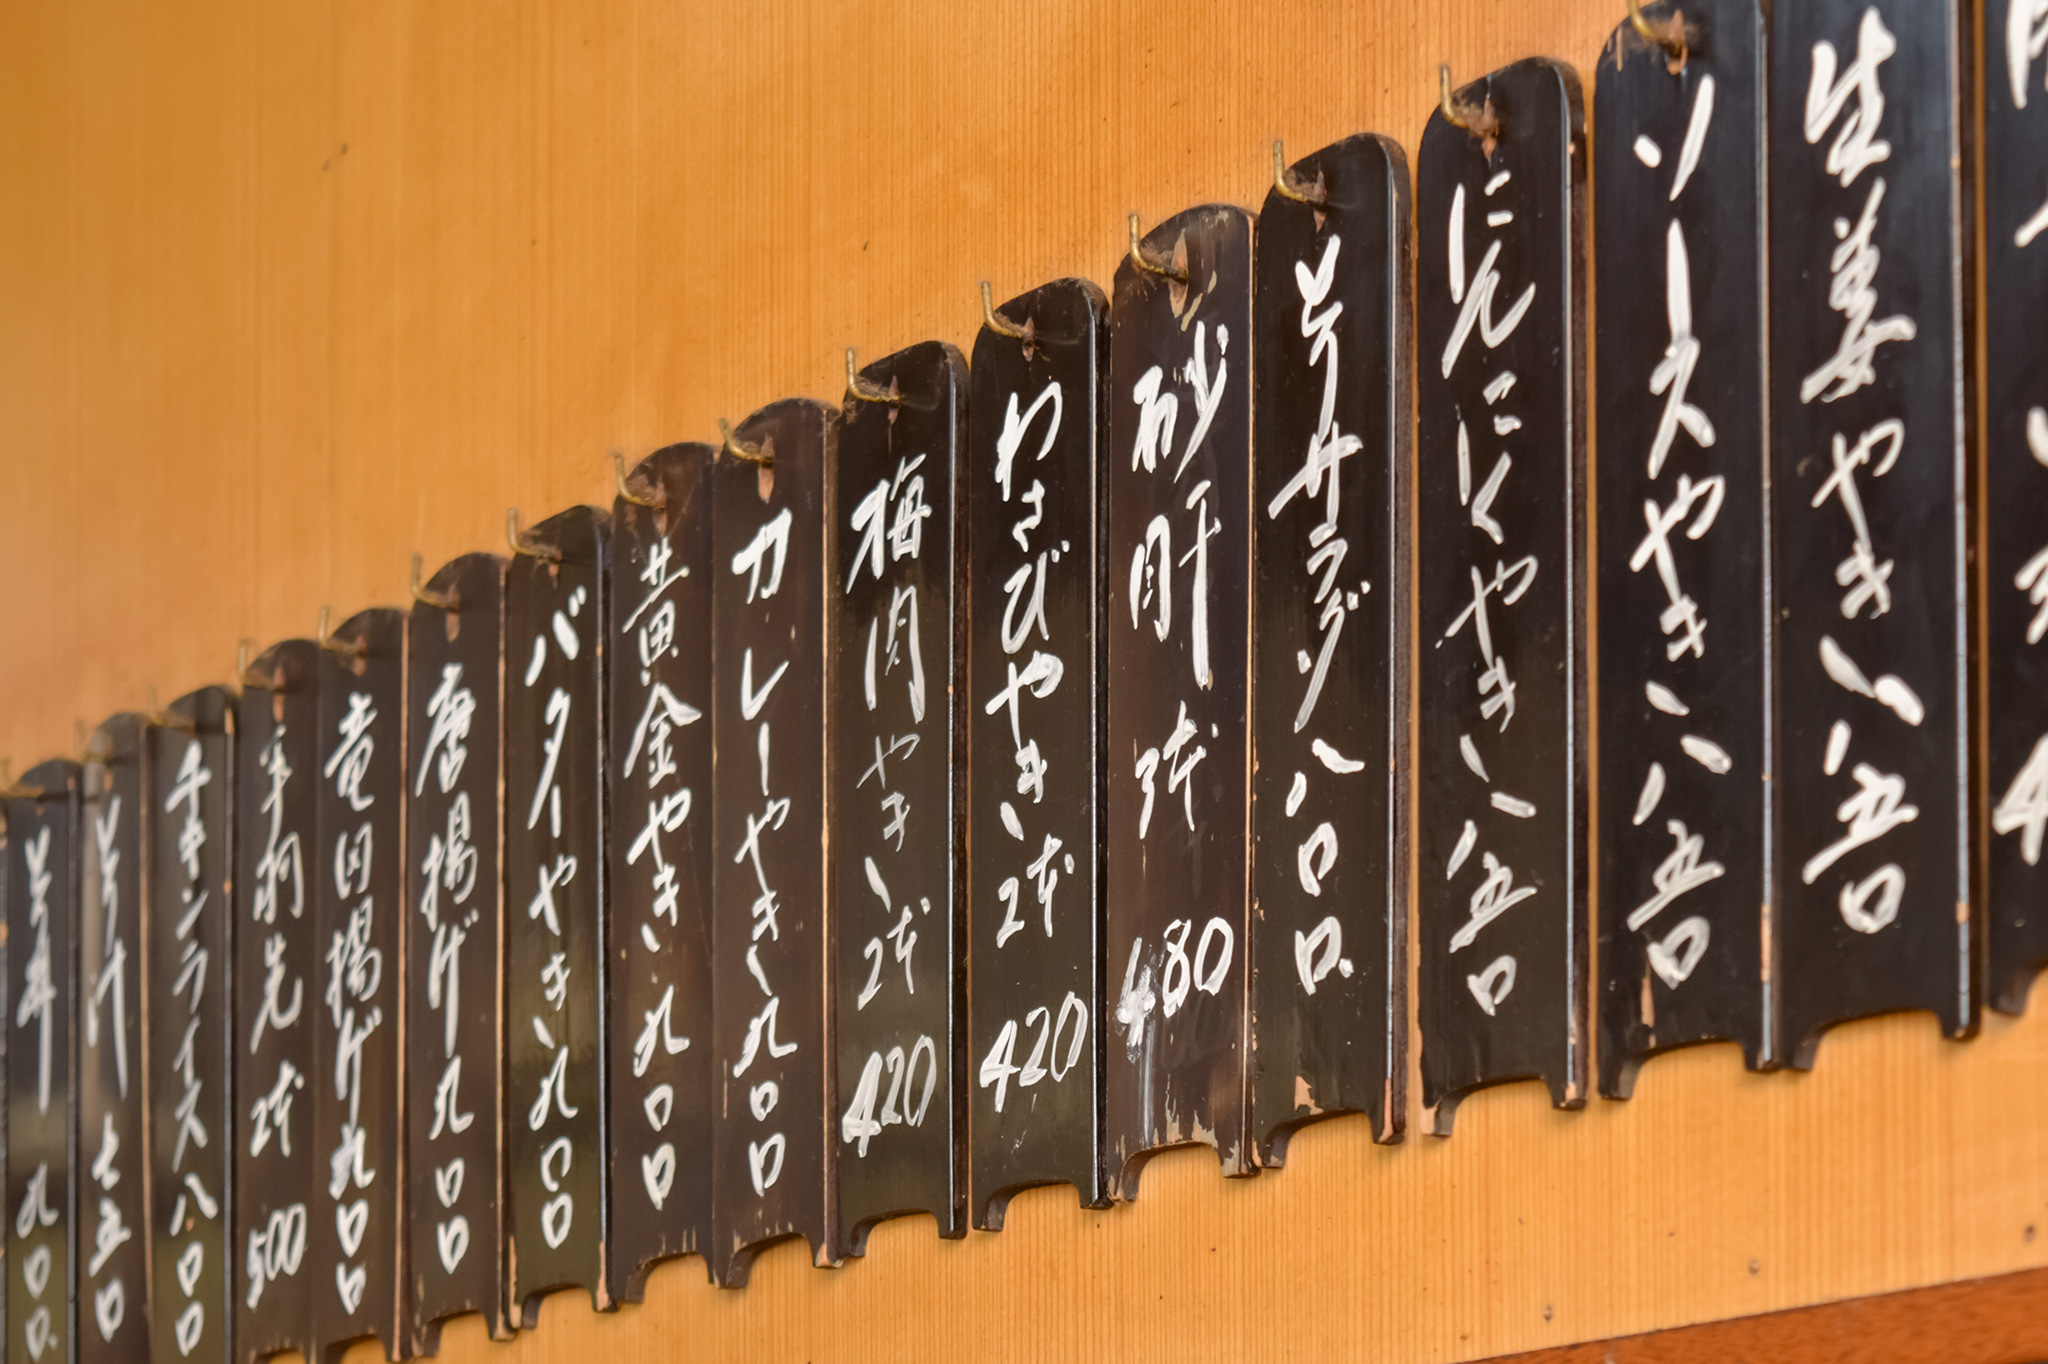 生姜やき八五〇
ソースやき八五〇
にんにくやき八五〇
とりサラダ八〇〇
砂肝 3本 480
わさびやき 2本 420
梅肉やき 2本 420
カレーやき九〇〇
黄金やき九〇〇
バターやき九〇〇
唐揚げ九〇〇
竜田揚げ九〇〇
手羽先 2本 500
チキンライス八〇〇
とり汁 七五〇
とり丼 九〇〇